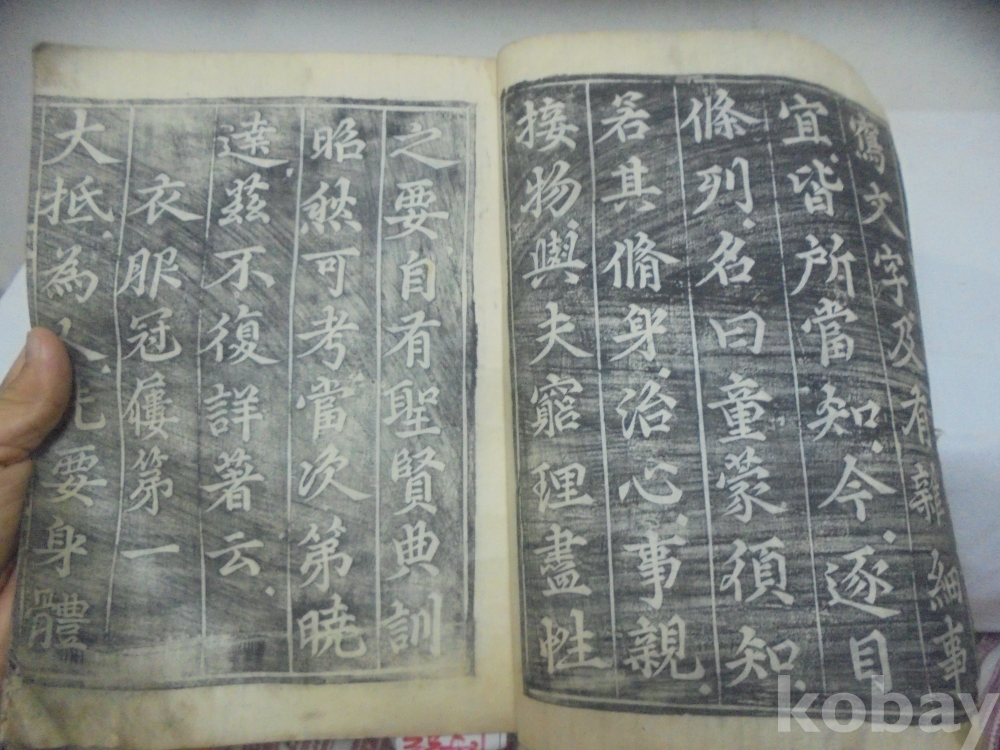 寫文字及有雜細事
宜皆所當知今逐目
條列名曰童蒙須知
若其脩身治心事親
接物與夫窮理盡性
之要自有聖賢典訓
昭然可考當次第曉
達茲不復詳著云
衣服冠屨第一
大抵為人先要身體
kobay